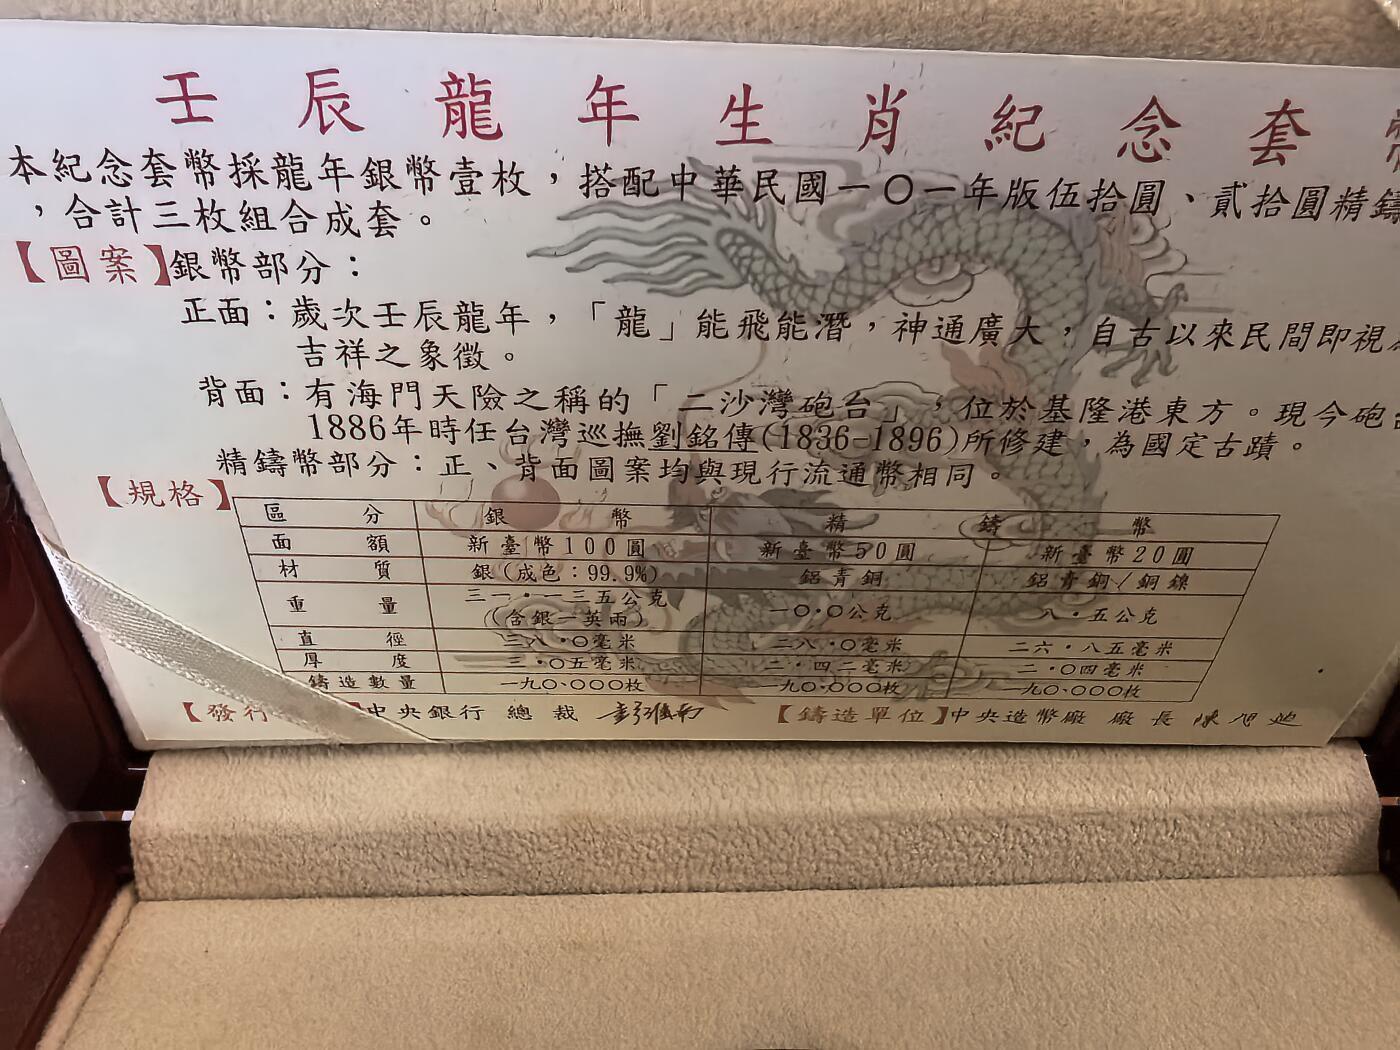 壬辰龍年生肖紀念套幣
本紀念套幣採龍年銀幣壹枚，搭配中華民國一〇一年版伍拾圓、貳拾圓精鑄
，合計三枚組合成套。
【圖案】銀幣部分：
正面：歲次壬辰龍年，「龍」能飛能潛，神通廣大，自古以來民間即視為
吉祥之象徵。
背面：有海門天險之稱的「二沙灣砲台」，位於基隆港東方。現今砲台
1886年時任台灣巡撫劉銘傳(1836-1896)所修建，為國定古蹟。
精鑄幣部分：正、背面圖案均與現行流通幣相同。
【規格】
區分 銀幣 精鑄幣
面額 新臺幣100圓 新臺幣50圓 新臺幣20圓
材質 銀(成色：99.9%) 鋁青銅 鋁青銅/銅鎳
重量 三一·一三五公克 (含銀一英兩) 一〇·〇公克 八·五公克
直徑 三八·〇毫米 二八·〇毫米 二六·八五毫米
厚度 三·〇五毫米 二·四二毫米 二·〇四毫米
鑄造數量 一九〇、〇〇〇枚 一九〇、〇〇〇枚 一九〇、〇〇〇枚
【發行 】中央銀行 總裁 彭淮南 【鑄造單位】中央造幣廠 廠長